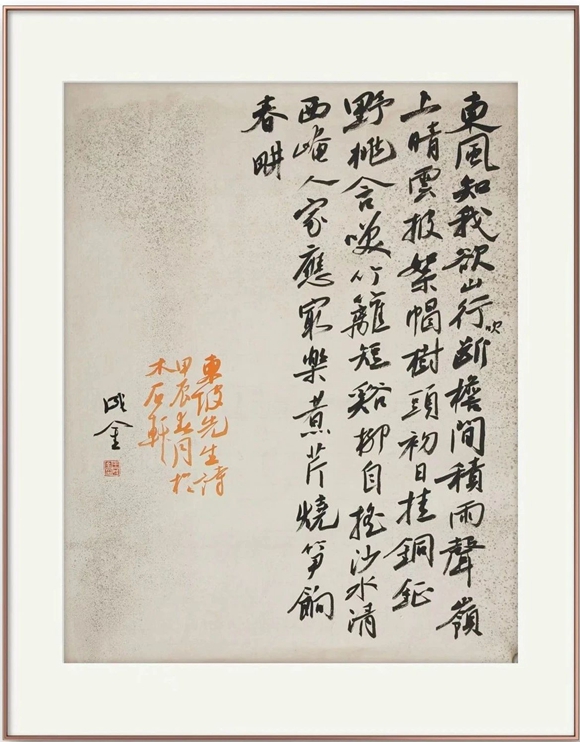 東風知我欲山行吹斷檐間積雨聲嶺
上晴雲披絮帽樹頭初日挂銅鉦
野桃含咲竹籬短谿柳自搖沙水清
西崦人家應冣樂煮芹燒笋餉
春畊
東坡先生诗
甲辰春月於
木石軒
金